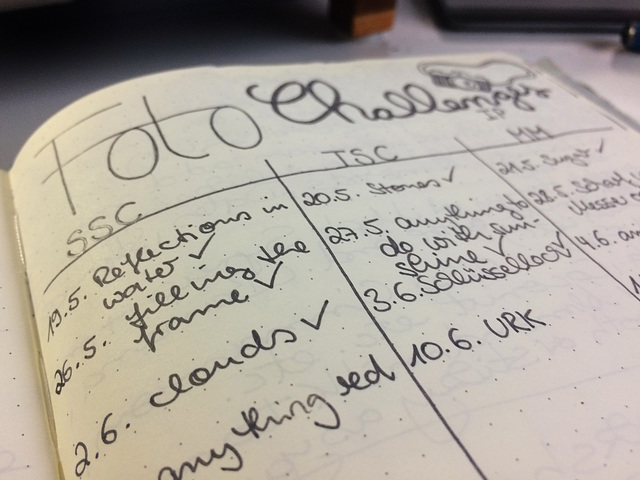 Foto Challenges
SSC
19.5. Reflections in
water ✓
26.5. filling the
frame ✓
2.6. clouds ✓
anything red
TSC
20.5. Stones ✓
27.5. anything to
do with sun-
shine ✓
3.6. Schlüsselloch ✓
10.6. URK
MM
21.5. ✓
28.5.
4.6. an